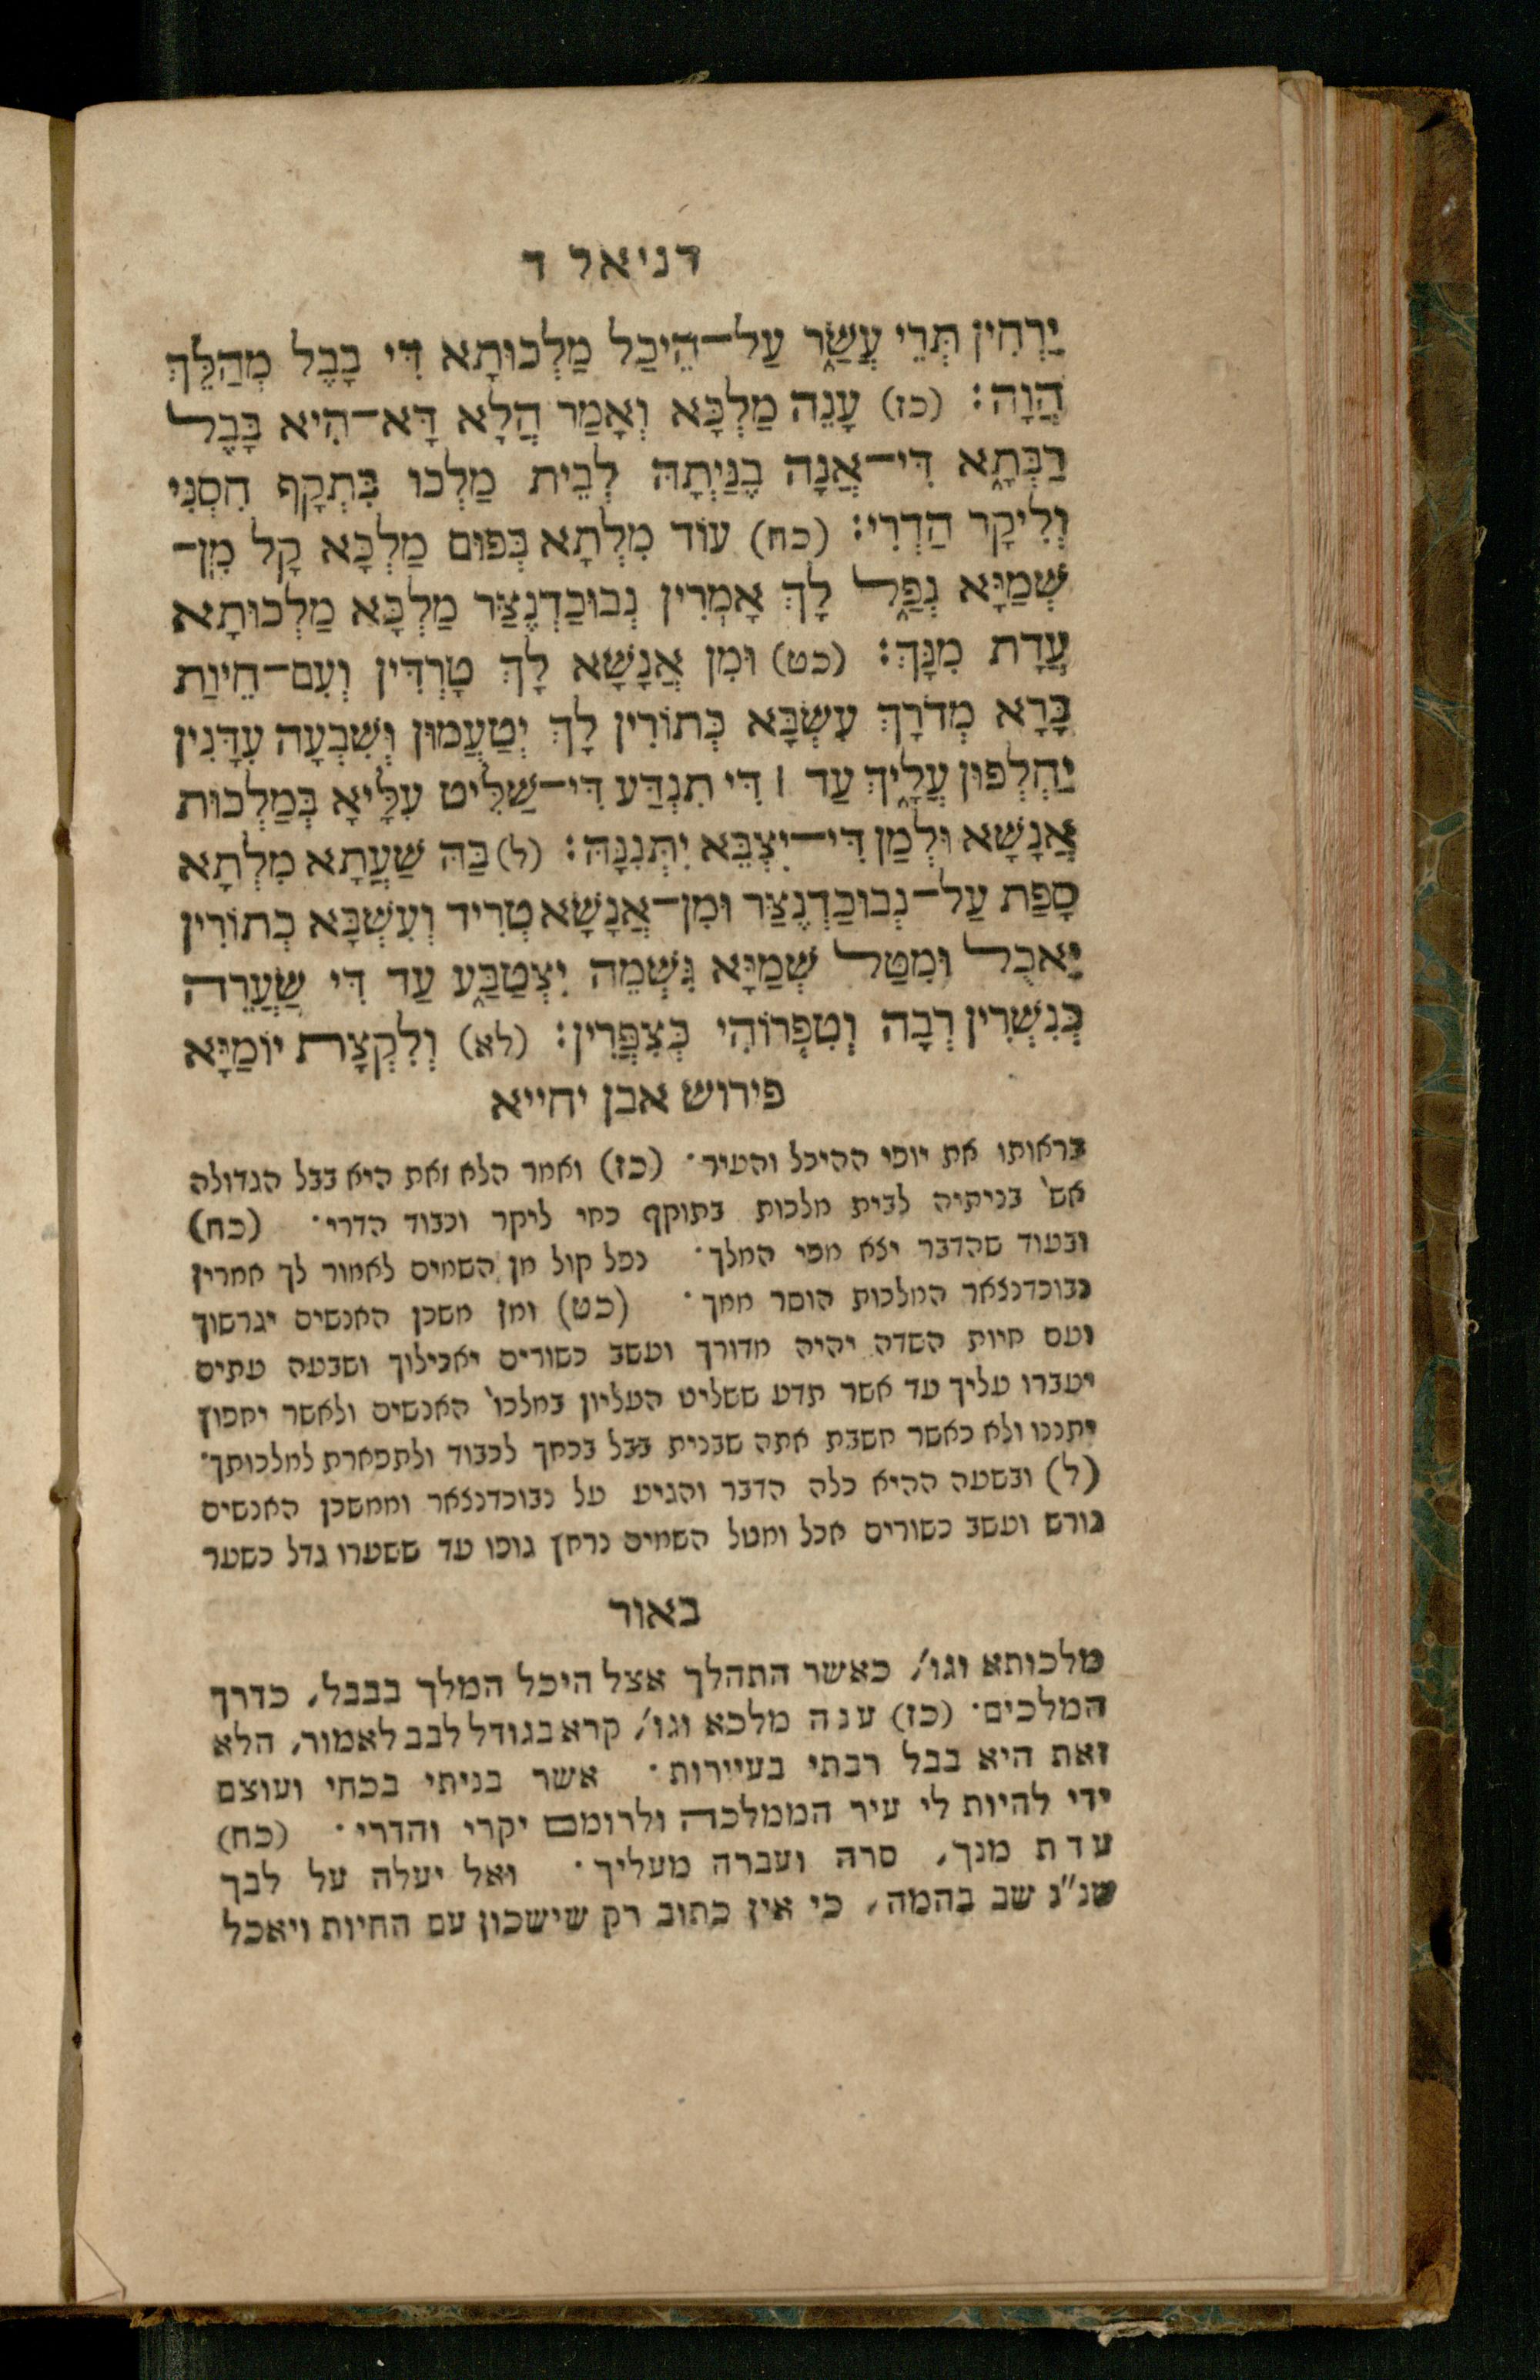 דניאל ד
יַרְחִין תְּרֵי עֲשַׂר עַל־הֵיכַל מַלְכוּתָא דִּי בָבֶל מְהַלֵּךְ
הֲוָה: (כז) עָנֵה מַלְכָּא וְאָמַר הֲלָא דָּא־הִיא בָּבֶל
רַבְּתָא דִּי־אֲנָה בֱנַיְתָהּ לְבֵית מַלְכוּ בִּתְקָף חִסְנִי
וְלִיקָר הַדְרִי: (כח) עוֹד מִלְּתָא בְּפוּם מַלְכָּא קָל מִן־
שְׁמַיָּא נְפַל לָךְ אָמְרִין נְבוּכַדְנֶצַּר מַלְכָּא מַלְכוּתָא
עֲדָת מִנָּךְ: (כט) וּמִן אֲנָשָׁא לָךְ טָרְדִין וְעִם־חֵיוַת
בָּרָא מְדֹרָךְ עִשְׂבָּא כְּתוֹרִין לָךְ יְטַעֲמוּן וְשִׁבְעָה עִדָּנִין
יַחְלְפוּן עֲלָיךְ עַד ׀ דִּי תִנְדַּע דִּי־שַׁלִּיט עִלָּיָא בְּמַלְכוּת
אֲנָשָׁא וּלְמַן דִּי־יִצְבֵּא יִתְּנִנַּהּ: (ל) בַּהּ שַׁעֲתָא מִלְּתָא
סָפַת עַל־נְבוּכַדְנֶצַּר וּמִן־אֲנָשָׁא טְרִיד וְעִשְׂבָּא כְתוֹרִין
יֵאכֻל וּמִטַּל שְׁמַיָּא גִּשְׁמֵהּ יִצְטַבַּע עַד דִּי שַׂעֲרֵהּ
כְּנִשְׁרִין רְבָה וְטִפְרוֹהִי כְצִפְּרִין: (לא) וְלִקְצָת יוֹמַיָּא
פירוש אבן יחייא
בראותו את יופי ההיכל והעיר· (כז) ואמר הלא זאת היא בבל הגדולה
אש' בניתיה לבית מלכות בתוקף כחי ליקר וכבוד הדרי· (כח)
ובעוד שהדבר יצא מפי המלך· נפל קול מן השמים לאמור לך אמרין
נבוכדנצאר המלכות הוסר ממך· (כט) ומן משכן האנשים יגרשוך
ועם חיות השדה יהיה מדורך ועשב כשורים יאכילוך ושבעה עתים
יעברו עליך עד אשר תדע ששליט העליון במלכו' האנשים ולאשר יחפוץ
יתננו ולא כאשר חשבת אתה שבנית בבל בכחך לכבוד ולתפארת למלכותך·
(ל) ובשעה ההיא כלה הדבר והגיע על נבוכדנצאר וממשכן האנשים
גורש ועשב כשורים אכל ומטל השמים נרחץ גופו עד ששערו גדל כשער
באור
מלכותא וגו', כאשר התהלך אצל היכל המלך בבבל, כדרך
המלכים· (כז) ענה מלכא וגו', קרא בגודל לבב לאמור, הלא
זאת היא בבל רבתי בעיירות· אשר בניתי בכחי ועוצם
ידי להיות לי עיר הממלכה ולרומם יקרי והדרי· (כח)
עדת מנך, סרה ועברה מעליך· ואל יעלה על לבך
שנ"נ שב בהמה, כי אין כתוב רק שישכון עם החיות ויאכל